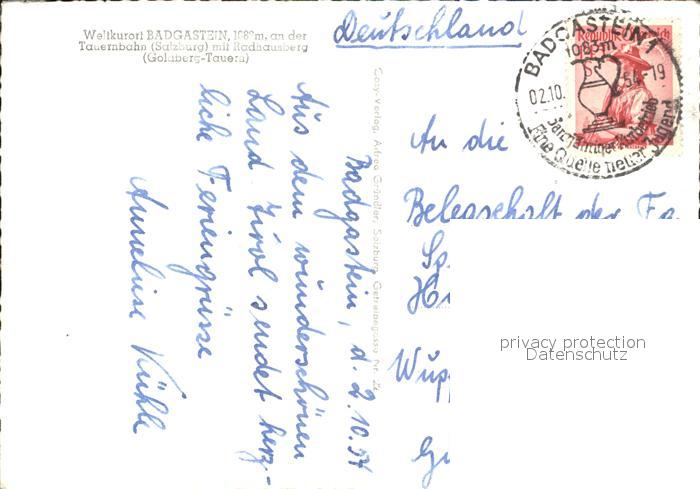 Weltkurort BADGASTEIN, 1083m, an der
Tauernbahn (Salzburg) mit Radhausberg
(Goldberg-Tauern)
Deutschland
BADGASTEIN 1
1083m
02.10. 54-19
Ganzjähriger Kurbetrieb
Eine Quelle neuer Jugend
Republik Österreich
Cosy-Verlag, Alfred Gründler, Salzburg, Getreidegasse Nr. 22
Badgastein, d. 2.10.54
Aus dem wunderschönen
Land Tirol sendet herz-
liche Feriengrüsse
Anneliese Kühle
An die
Belegschaft der Fa.
Sp
Hi
Wup
Gu
privacy protection
Datenschutz